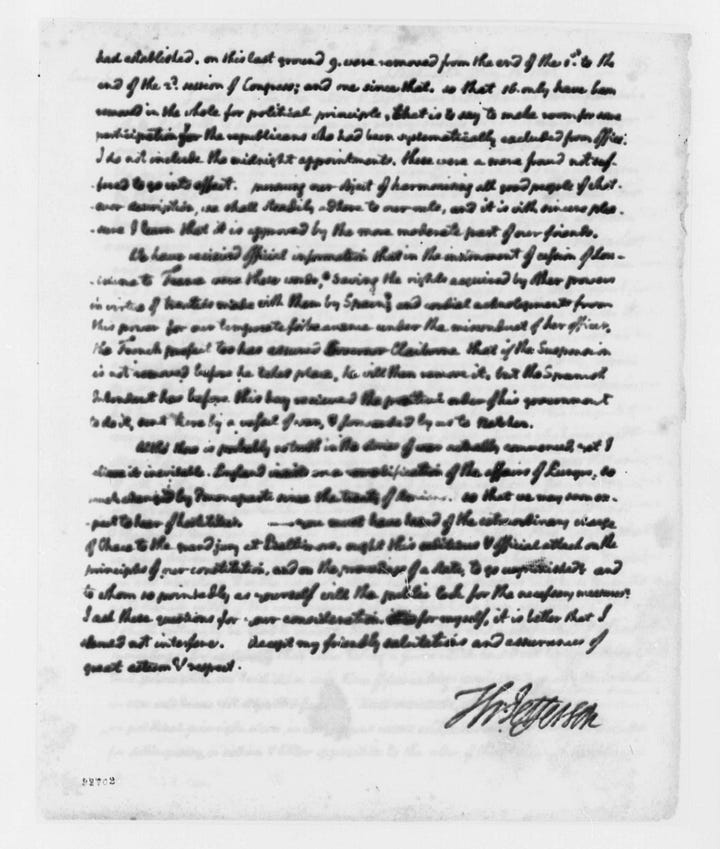 had established. on this last ground 9. were removed from the end of the 1st. to the
end of the 2d. session of Congress; and one since that. so that 16. only have been
removed in the whole for political principle, that is to say to make room for some
participation for the republicans who had been systematically excluded from office.
I do not include the midnight appointments. these were a mere fraud not suf-
-fered to go into effect. pursuing our object of harmonising all good people of what-
-ever description, we shall steadily adhere to our rule, and it is with sincere plea-
-sure I learn that it is approved by the more moderate part of our friends.
We have received official information that in the instrument of cession of Lou-
-isiana to France were these words, "Saving the rights acquired by other powers
in virtue of treaties made with them by Spain"; and cordial acknolegements from
this power for our temperate forbearance under the misconduct of her officer.
the French prefect too has assured Governor Claiborne that if the Suspension
is not removed before he takes place, he will then remove it. but the Spanish
Intendant has before this day recieved the positive order of his government
to do it, sent here by a vessel of war, & forwarded by us to Natchez.
Altho' there is probably no truth in the stories of war actually commenced, yet I
believe it inevitable. England insists on a remodification of the affairs of Europe, so
much changed by Buonaparte since the treaty of Amiens. so that we may soon ex-
-pect to hear of hostilities. you must have heard of the extraordinary charge
of Chace to the grand jury at Baltimore. ought this seditious & official attack on the
principles of our constitution, and on the proceedings of a state, to go unpunished? and
to whom so pointedly as yourself will the public look for the necessary measures?
I ask these questions for your consideration. for myself, it is better that I
should not interfere. Accept my friendly salutations and assurances of
great esteem & respect.
Th: Jefferson
22702